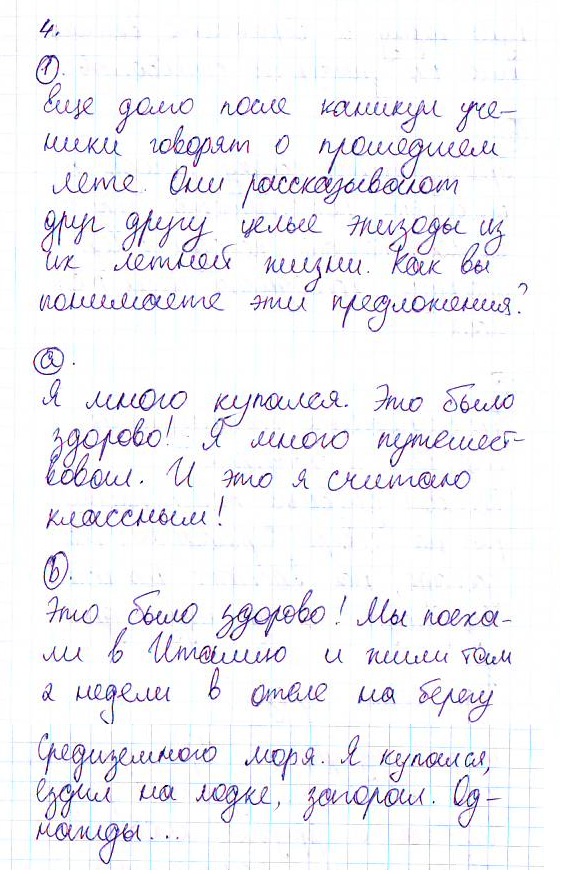 4.
1.
Еще долго после каникул уче-
ники говорят о прошедшем
лете. Они рассказывают
друг другу целые эпизоды из
их летней жизни. Как вы
понимаете эти предложения?
a.
Я много купался. Это было
здорово! Я много путешест-
вовал. И это я считаю
классным!
b.
Это было здорово! Мы поеха-
ли в Италию и жили там
2 недели в отеле на берегу
Средиземного моря. Я купался,
ездил на лодке, загорал. Од-
нажды...